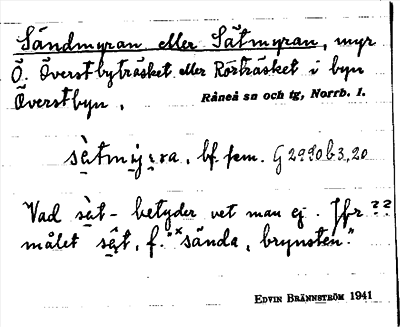 Sändmyran eller Sätmyran, myr
Ö. Överstbyträsket eller Rörträsket i byn
Överstbyn.
Råneå sn och tg, Norrb. l.
sàtmy̆ra, bf. fem. G 2990 b 3,20
Vad sàt- betyder vet man ej. Jfr ??
målet sàt, f. "×sända, brynsten".
EDVIN BRÄNNSTRÖM 1941